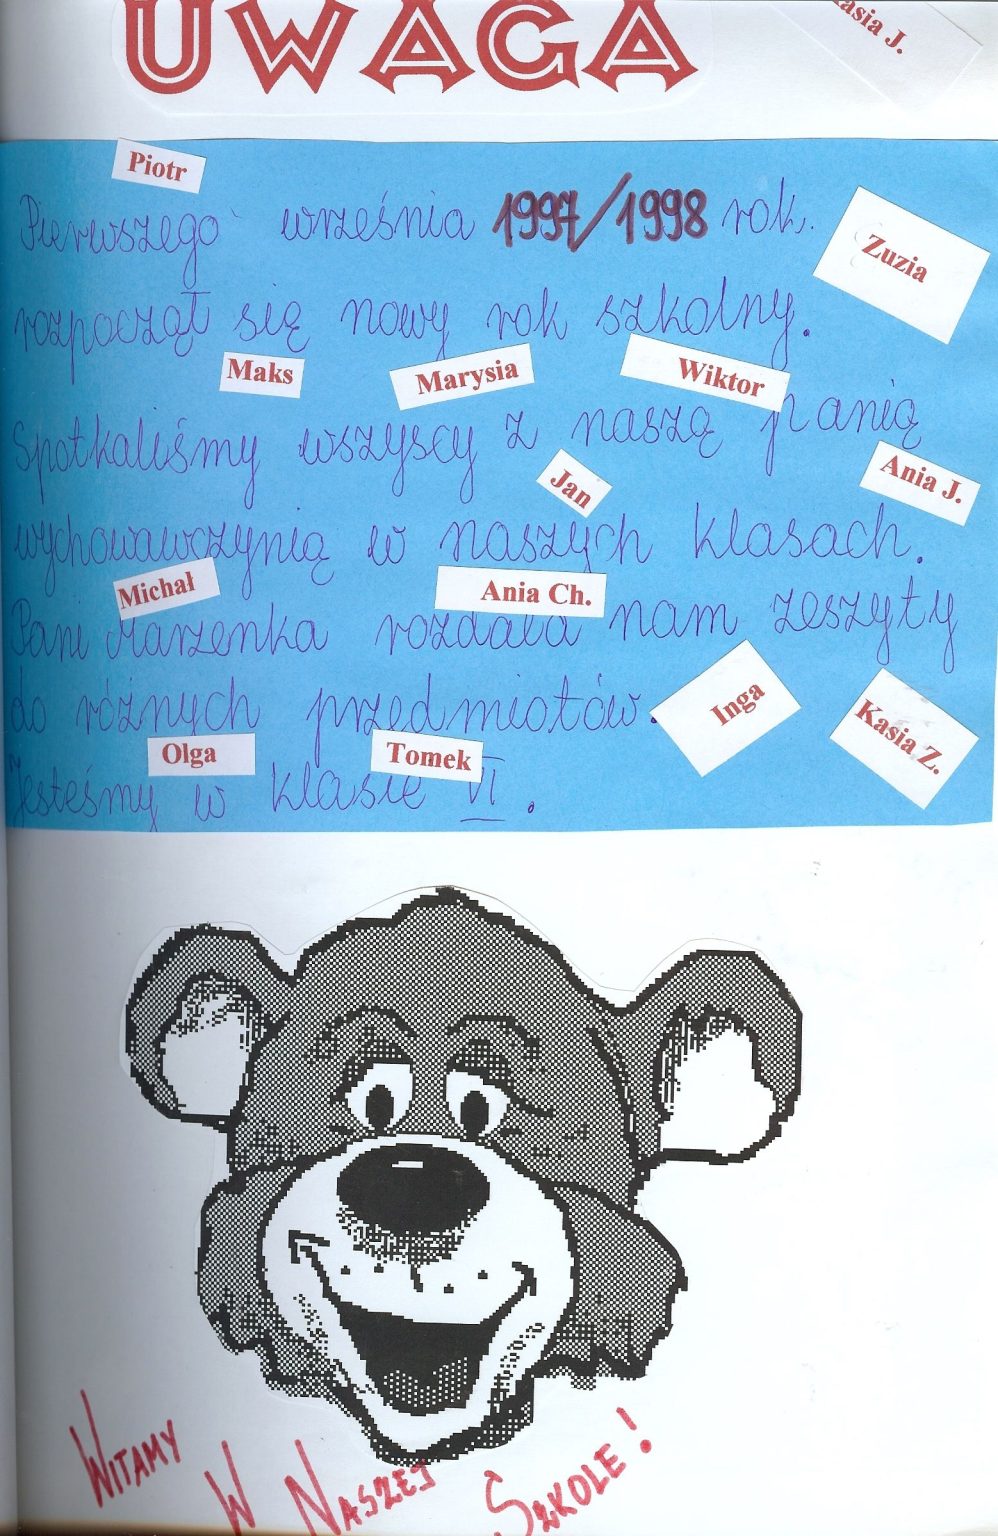 UWAGA
Kasia J.
Piotr
Pierwszego września 1997/1998 rok.
Zuzia
rozpoczął się nowy rok szkolny.
Maks
Marysia
Wiktor
Spotkaliśmy wszyscy z naszą panią
Jan
Ania J.
wychowawczynią w naszych klasach.
Michał
Ania Ch.
Pani Marzenka rozdała nam zeszyty
do różnych przedmiotów.
Inga
Kasia Z.
Olga
Tomek
Jesteśmy w klasie VI.
WITAMY
W NASZEJ SZKOLE!